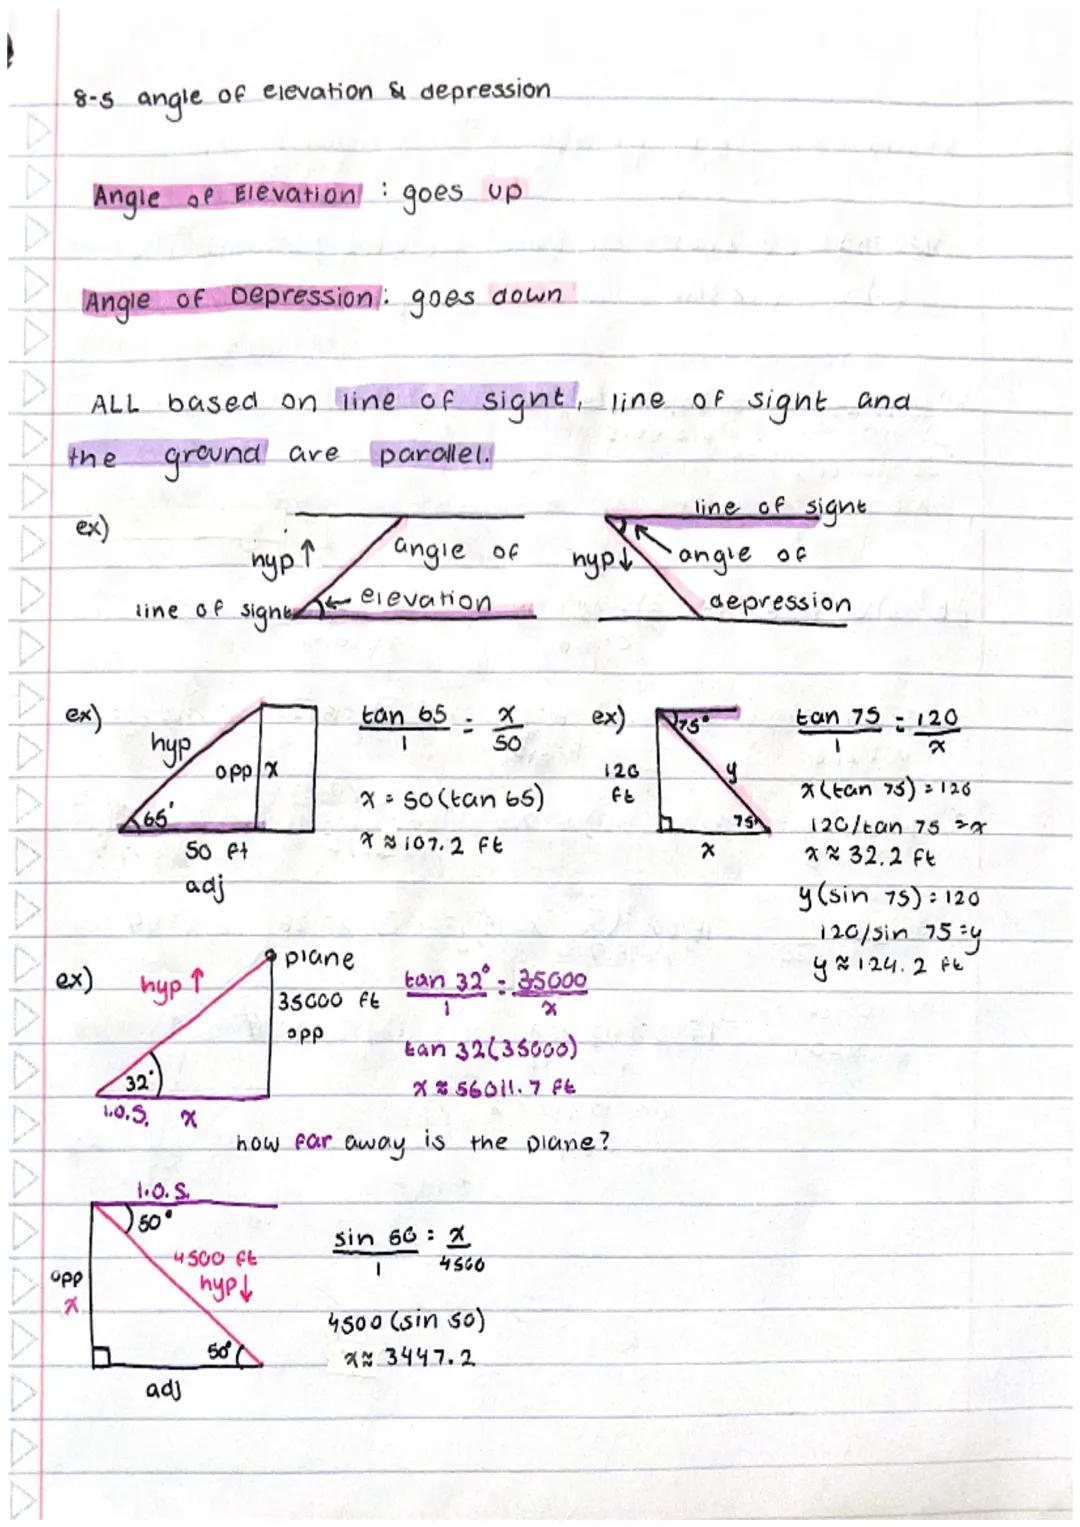 8-5 angle of elevation & depression
Angle of Elevation : goes up
Angle of Depression: goes down
ALL based on line of sight, line of sight and
the ground are parallel.
ex)
hyp ↑
angle of
elevation
line of sight
line of sight
hyp ↓
angle of
depression
ex)
hyp
opp x
65°
50 ft
adj
tan 65 = x
1 50
x = 50(tan 65)
x ≈ 107.2 ft
ex)
75°
120
ft
y
75°
x
tan 75 = 120
1 x
x(tan 75) = 120
120/tan 75 = x
x ≈ 32.2 ft
y(sin 75) = 120
120/sin 75 = y
y ≈ 124.2 ft
ex)
hyp ↑
plane
35000 ft
opp
32°
l.o.s. x
tan 32° = 35000
1 x
tan 32(35000)
x ≈ 56011.7 ft
how far away is the plane?
l.o.s.
50°
4500 ft
hyp ↓
opp
x
50°
adj
sin 50 = x
1 4500
4500 (sin 50)
x ≈ 3447.2